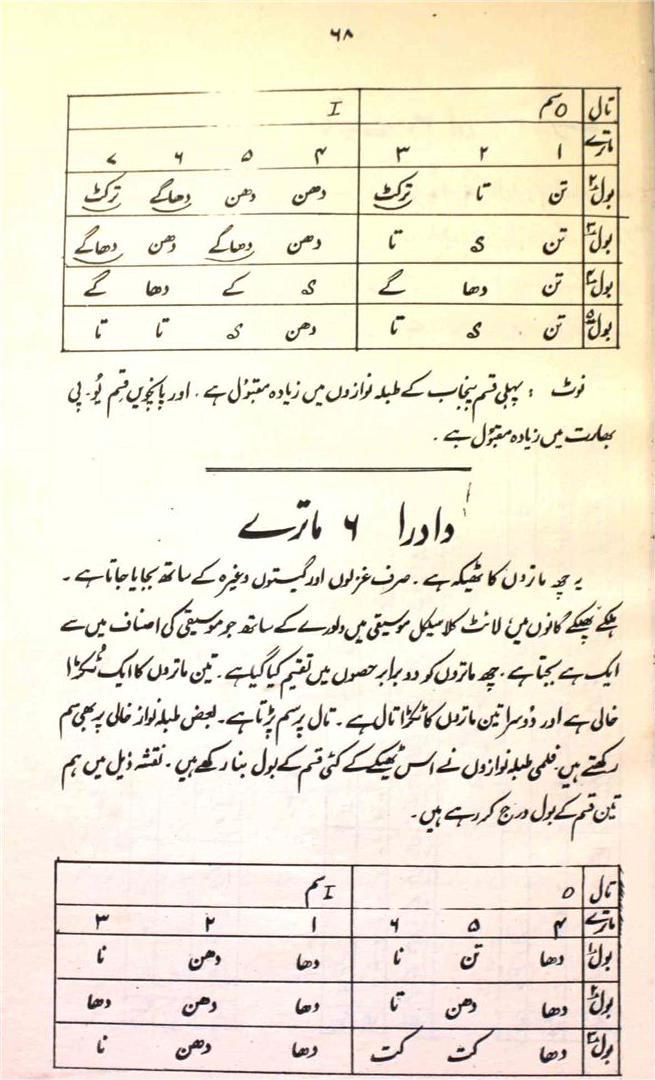 ۶۸
تال O سم I
ماترے ۱ ۲ ۳ ۴ ۵ ۶ ۷
بول ۲ تن تا ترکٹ دھن دھن دھاگے ترکٹ
بول ۳ تن ی تا دھن دھاگے دھن دھاگے
بول ۴ تن دھا گے ی کے دھا گے
بول ۵ تن ی تا دھن ی تا تا
نوٹ : پہلی قسم پنجاب کے طبلہ نوازوں میں زیادہ مقبول ہے ۔ اور پانچویں قسم یُو۔ پی
بھارت میں زیادہ مقبول ہے ۔
دادرا ۶ ماترے
یہ چھ ماتروں کا ٹھیکہ ہے ۔ صرف غزلوں اور گیتوں وغیرہ کے ساتھ بجایا جاتا ہے ۔
ہلکے پھلکے گانوں میں لائٹ کلاسیکل موسیقی میں دادرے کے ساتھ جو موسیقی کی اصناف میں سے
ایک ہے بجتا ہے ۔ چھ ماتروں کو دو برابر حصوں میں تقسیم کیا گیا ہے ۔ تین ماتروں کا ایک ٹکڑا
خالی ہے اور دُوسرا تین ماتروں کا ٹکڑا تال ہے ۔ تال پر سم پڑتا ہے ۔ بعض طبلہ نواز خالی پر بھی سم
رکھتے ہیں ۔ فلمی طبلہ نوازوں نے اس ٹھیکے کے کئی قسم کے بول بنا رکھے ہیں ۔ نقشہ ذیل میں ہم
تین قسم کے بول درج کر رہے ہیں ۔
تال O I سم
ماترے ۴ ۵ ۶ ۱ ۲ ۳
بول ۱ دھا تن نا دھا دھن نا
بول ۲ دھا دھن تا دھا دھن دھا
بول ۳ دھا کت کت دھا دھن نا